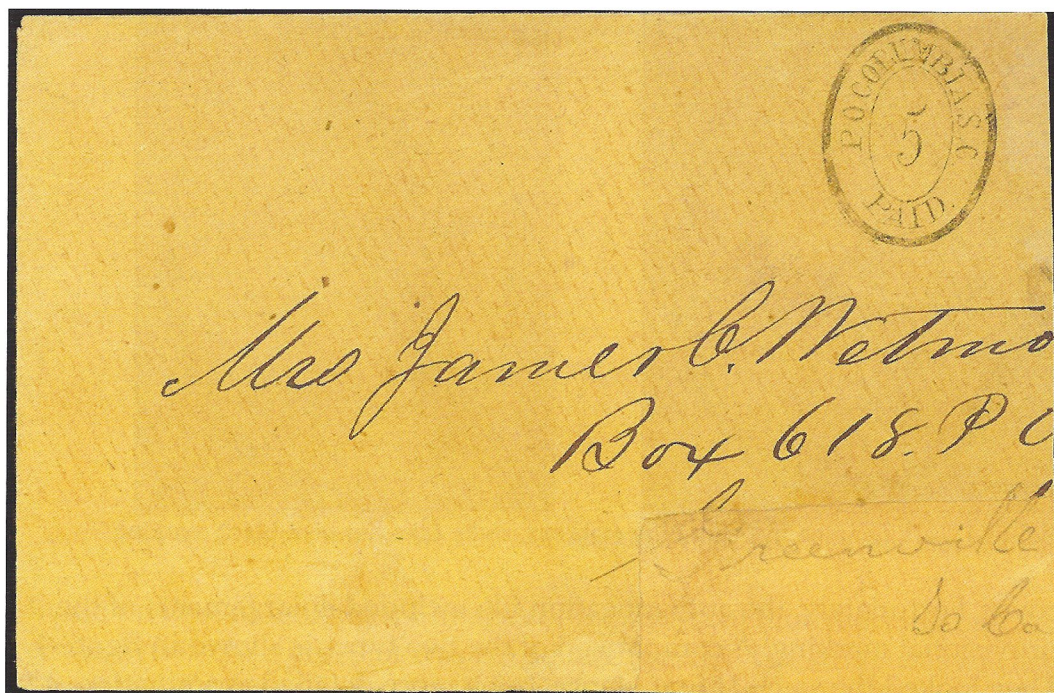 P.O. COLUMBIA. S. C.
5
PAID.
Mrs James C. Wetmo
Box 618. P O
Greenville
So Ca